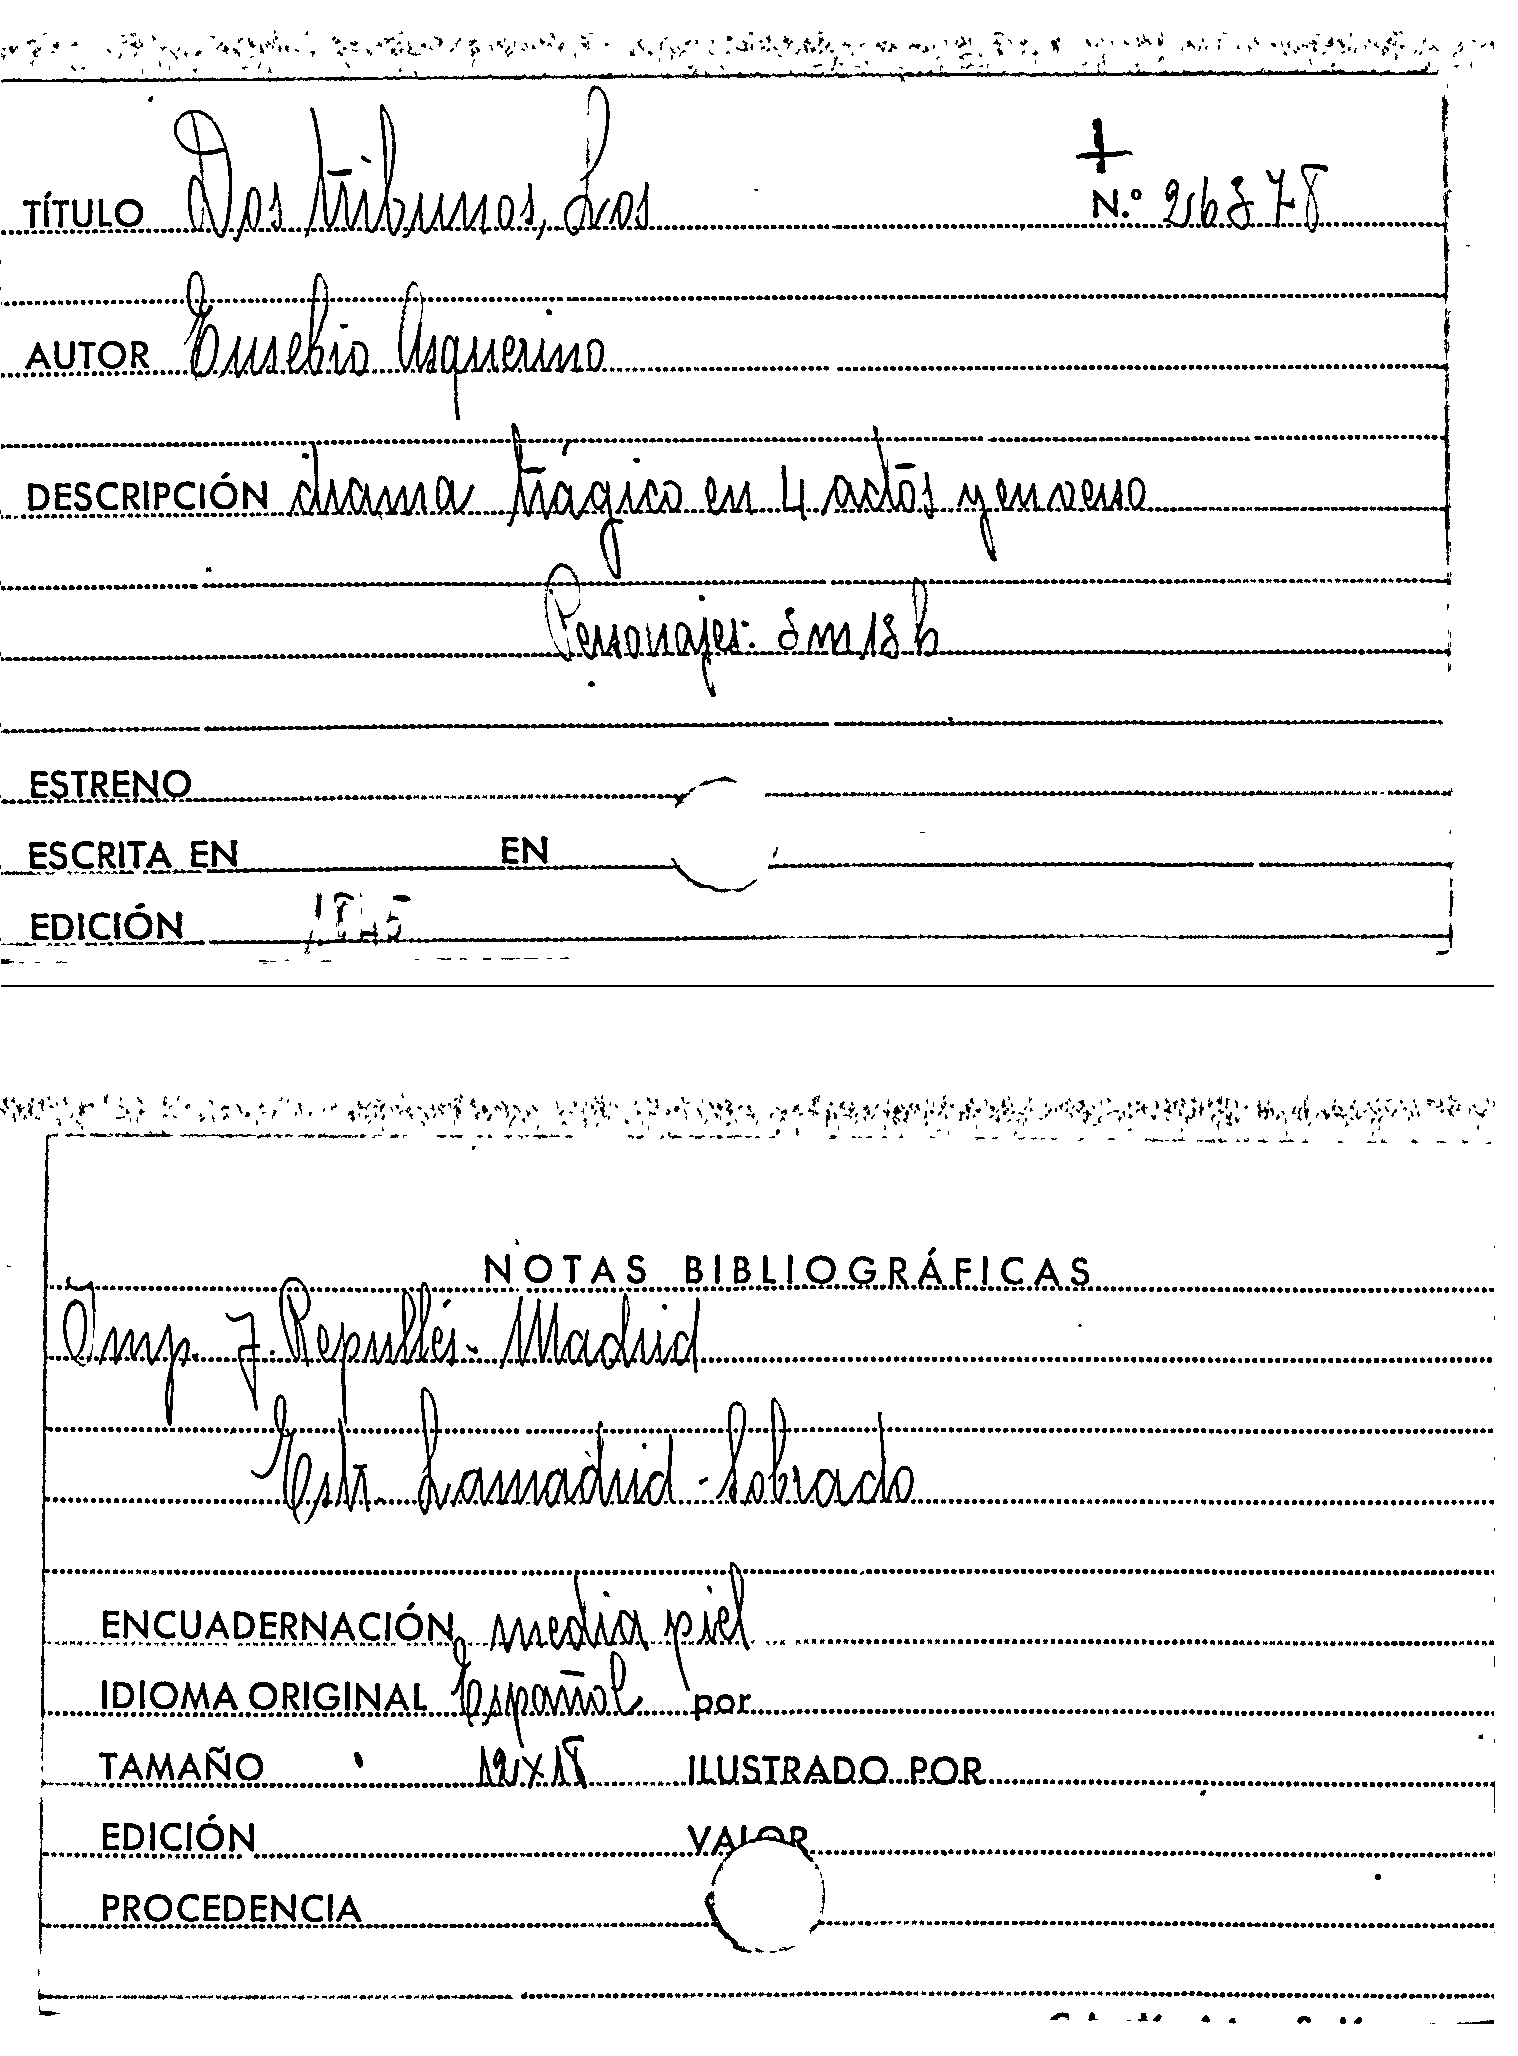 TÍTULO Dos tribunos, Los N.º 26378
AUTOR Eusebio Asquerino
DESCRIPCIÓN drama trágico en 4 actos y en verso
Personajes: 3 m 13 h
ESTRENO
ESCRITA EN EN
EDICIÓN 1845
NOTAS BIBLIOGRÁFICAS
Imp. J. Repullés - Madrid
Estr. Lamadrid - Sobrado
ENCUADERNACIÓN media piel
IDIOMA ORIGINAL Español por
TAMAÑO 12x18 ILUSTRADO POR
EDICIÓN VALOR
PROCEDENCIA